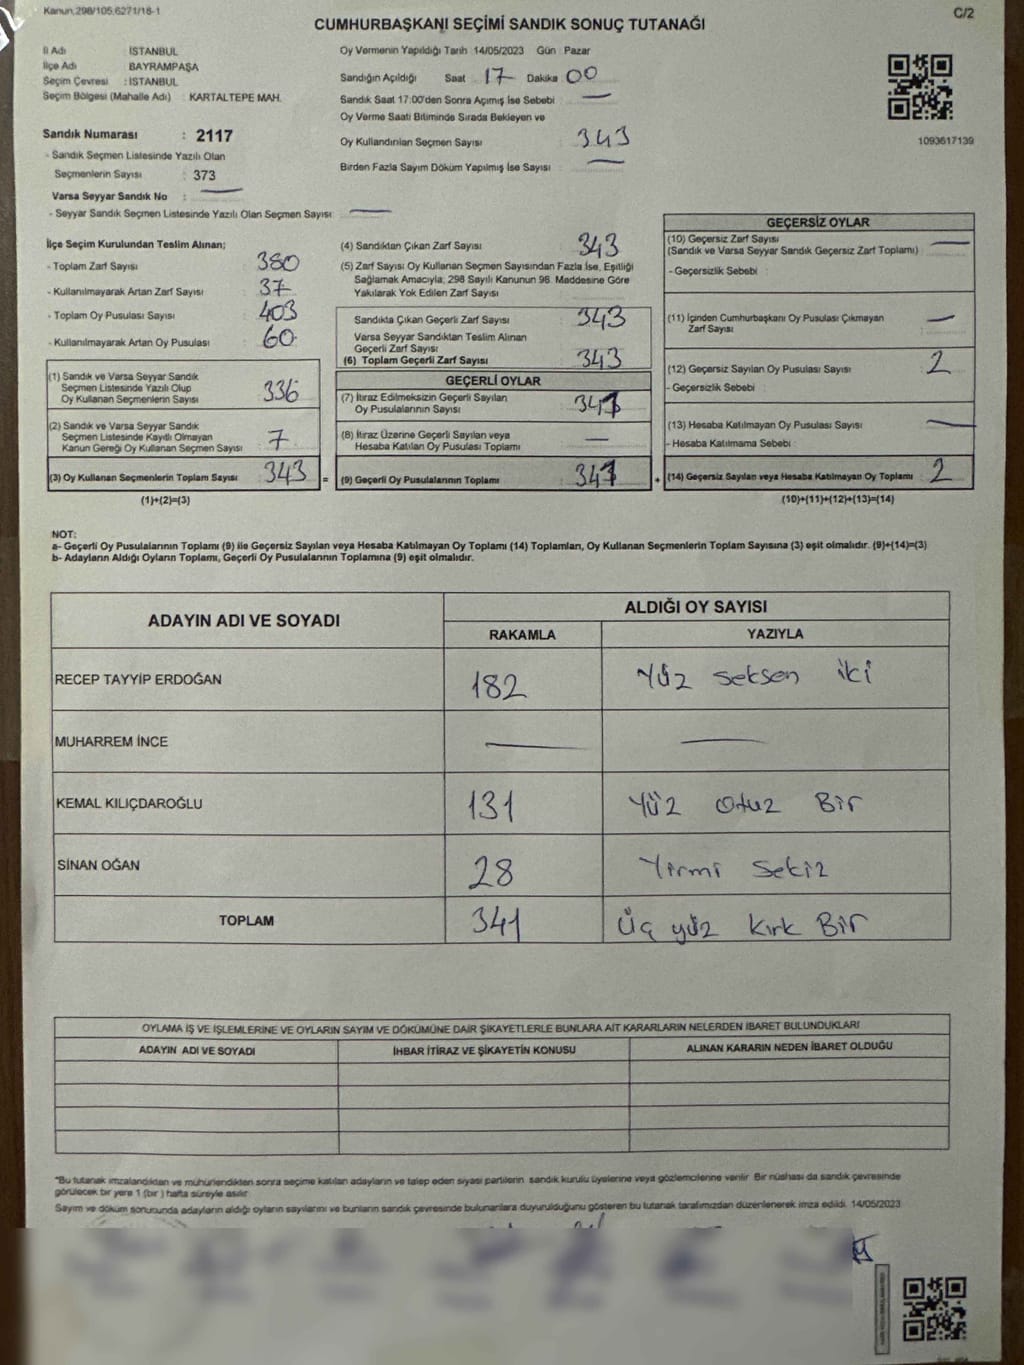 Kanun,298/105,6271/16-1
C/2
CUMHURBAŞKANI SEÇİMİ SANDIK SONUÇ TUTANAĞI
İl Adı : İSTANBUL
İlçe Adı : BAYRAMPAŞA
Seçim Çevresi : İSTANBUL
Seçim Bölgesi (Mahalle Adı) : KARTALTEPE MAH.
Sandık Numarası : 2117
- Sandık Seçmen Listesinde Yazılı Olan
Seçmenlerin Sayısı : 373
Varsa Seyyar Sandık No : —
- Seyyar Sandık Seçmen Listesinde Yazılı Olan Seçmen Sayısı: —
Oy Vermenin Yapıldığı Tarih :14/05/2023 Gün : Pazar
Sandığın Açıldığı Saat 17 Dakika 00
Sandık Saat 17:00'den Sonra Açımış İse Sebebi : —
Oy Verme Saati Bitiminde Sırada Bekleyen ve
Oy Kullandırılan Seçmen Sayısı : 343
Birden Fazla Sayım Döküm Yapılmış İse Sayısı : —
1093617139
İlçe Seçim Kurulundan Teslim Alınan;
- Toplam Zarf Sayısı : 380
- Kullanılmayarak Artan Zarf Sayısı : 37
- Toplam Oy Pusulası Sayısı : 403
- Kullanılmayarak Artan Oy Pusulası : 60
(1) Sandık ve Varsa Seyyar Sandık
Seçmen Listesinde Yazılı Olup
Oy Kullanan Seçmenlerin Sayısı : 336
(2) Sandık ve Varsa Seyyar Sandık
Seçmen Listesinde Kayıtlı Olmayan
Kanun Gereği Oy Kullanan Seçmen Sayısı : 7
(3) Oy Kullanan Seçmenlerin Toplam Sayısı : 343
(1)+(2)=(3)
(4) Sandıktan Çıkan Zarf Sayısı : 343
(5) Zarf Sayısı Oy Kullanan Seçmen Sayısından Fazla İse, Eşitliği
Sağlamak Amacıyla, 298 Sayılı Kanunun 98. Maddesine Göre
Yakılarak Yok Edilen Zarf Sayısı :
Sandıkta Çıkan Geçerli Zarf Sayısı : 343
Varsa Seyyar Sandıktan Teslim Alınan
Geçerli Zarf Sayısı :
(6) Toplam Geçerli Zarf Sayısı : 343
GEÇERLİ OYLAR
(7) İtiraz Edilmeksizin Geçerli Sayılan
Oy Pusulalarının Sayısı : 341
(8) İtiraz Üzerine Geçerli Sayılan veya
Hesaba Katılan Oy Pusulası Toplamı : —
= (9) Geçerli Oy Pusulalarının Toplamı : 341 +
GEÇERSİZ OYLAR
(10) Geçersiz Zarf Sayısı : —
(Sandık ve Varsa Seyyar Sandık Geçersiz Zarf Toplamı)
- Geçersizlik Sebebi :
(11) İçinden Cumhurbaşkanı Oy Pusulası Çıkmayan
Zarf Sayısı : —
(12) Geçersiz Sayılan Oy Pusulası Sayısı : 2
- Geçersizlik Sebebi :
(13) Hesaba Katılmayan Oy Pusulası Sayısı : —
- Hesaba Katılmama Sebebi :
(14) Geçersiz Sayılan veya Hesaba Katılmayan Oy Toplamı : 2
(10)+(11)+(12)+(13)=(14)
NOT:
a- Geçerli Oy Pusulalarının Toplamı (9) ile Geçersiz Sayılan veya Hesaba Katılmayan Oy Toplamı (14) Toplamları, Oy Kullanan Seçmenlerin Toplam Sayısına (3) eşit olmalıdır. (9)+(14)=(3)
b- Adayların Aldığı Oyların Toplamı, Geçerli Oy Pusulalarının Toplamına (9) eşit olmalıdır.
ADAYIN ADI VE SOYADI
ALDIĞI OY SAYISI
RAKAMLA YAZIYLA
RECEP TAYYİP ERDOĞAN 182 Yüz seksen iki
MUHARREM İNCE — —
KEMAL KILIÇDAROĞLU 131 Yüz otuz Bir
SİNAN OĞAN 28 Yirmi Sekiz
TOPLAM 341 Üç yüz Kırk Bir
OYLAMA İŞ VE İŞLEMLERİNE VE OYLARIN SAYIM VE DÖKÜMÜNE DAİR ŞİKAYETLERLE BUNLARA AİT KARARLARIN NELERDEN İBARET BULUNDUKLARI
ADAYIN ADI VE SOYADI İHBAR İTİRAZ VE ŞİKAYETİN KONUSU ALINAN KARARIN NEDEN İBARET OLDUĞU
*Bu tutanak imzalandıktan ve mühürlendikten sonra seçime katılan adayların ve talep eden siyasi partilerin sandık kurulu üyelerine veya gözlemcilerine verilir. Bir nüshası da sandık çevresinde
görülecek bir yere 1 (bir ) hafta süreyle asılır.
Sayım ve döküm sonucunda adayların aldığı oyların sayılarını ve bunların sandık çevresinde bulunanlara duyurulduğunu gösteren bu tutanak tarafımızdan düzenlenerek imza edildi. 14/05/2023